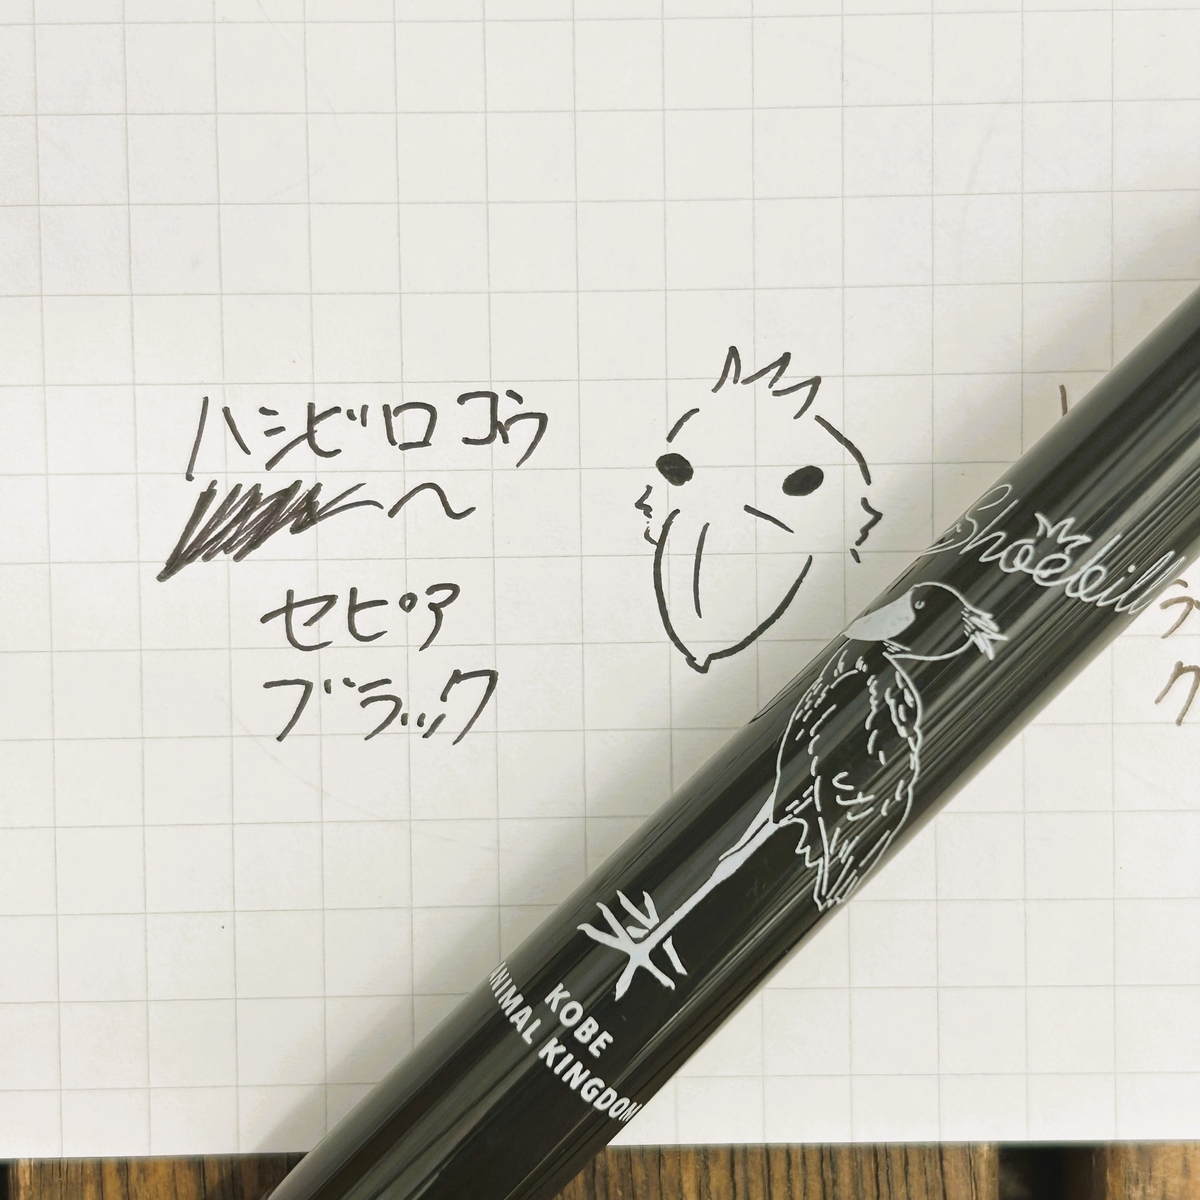 ハシビロコウ
〜
セピア
ブラック
Shoebill
KOBE
ANIMAL KINGDOM